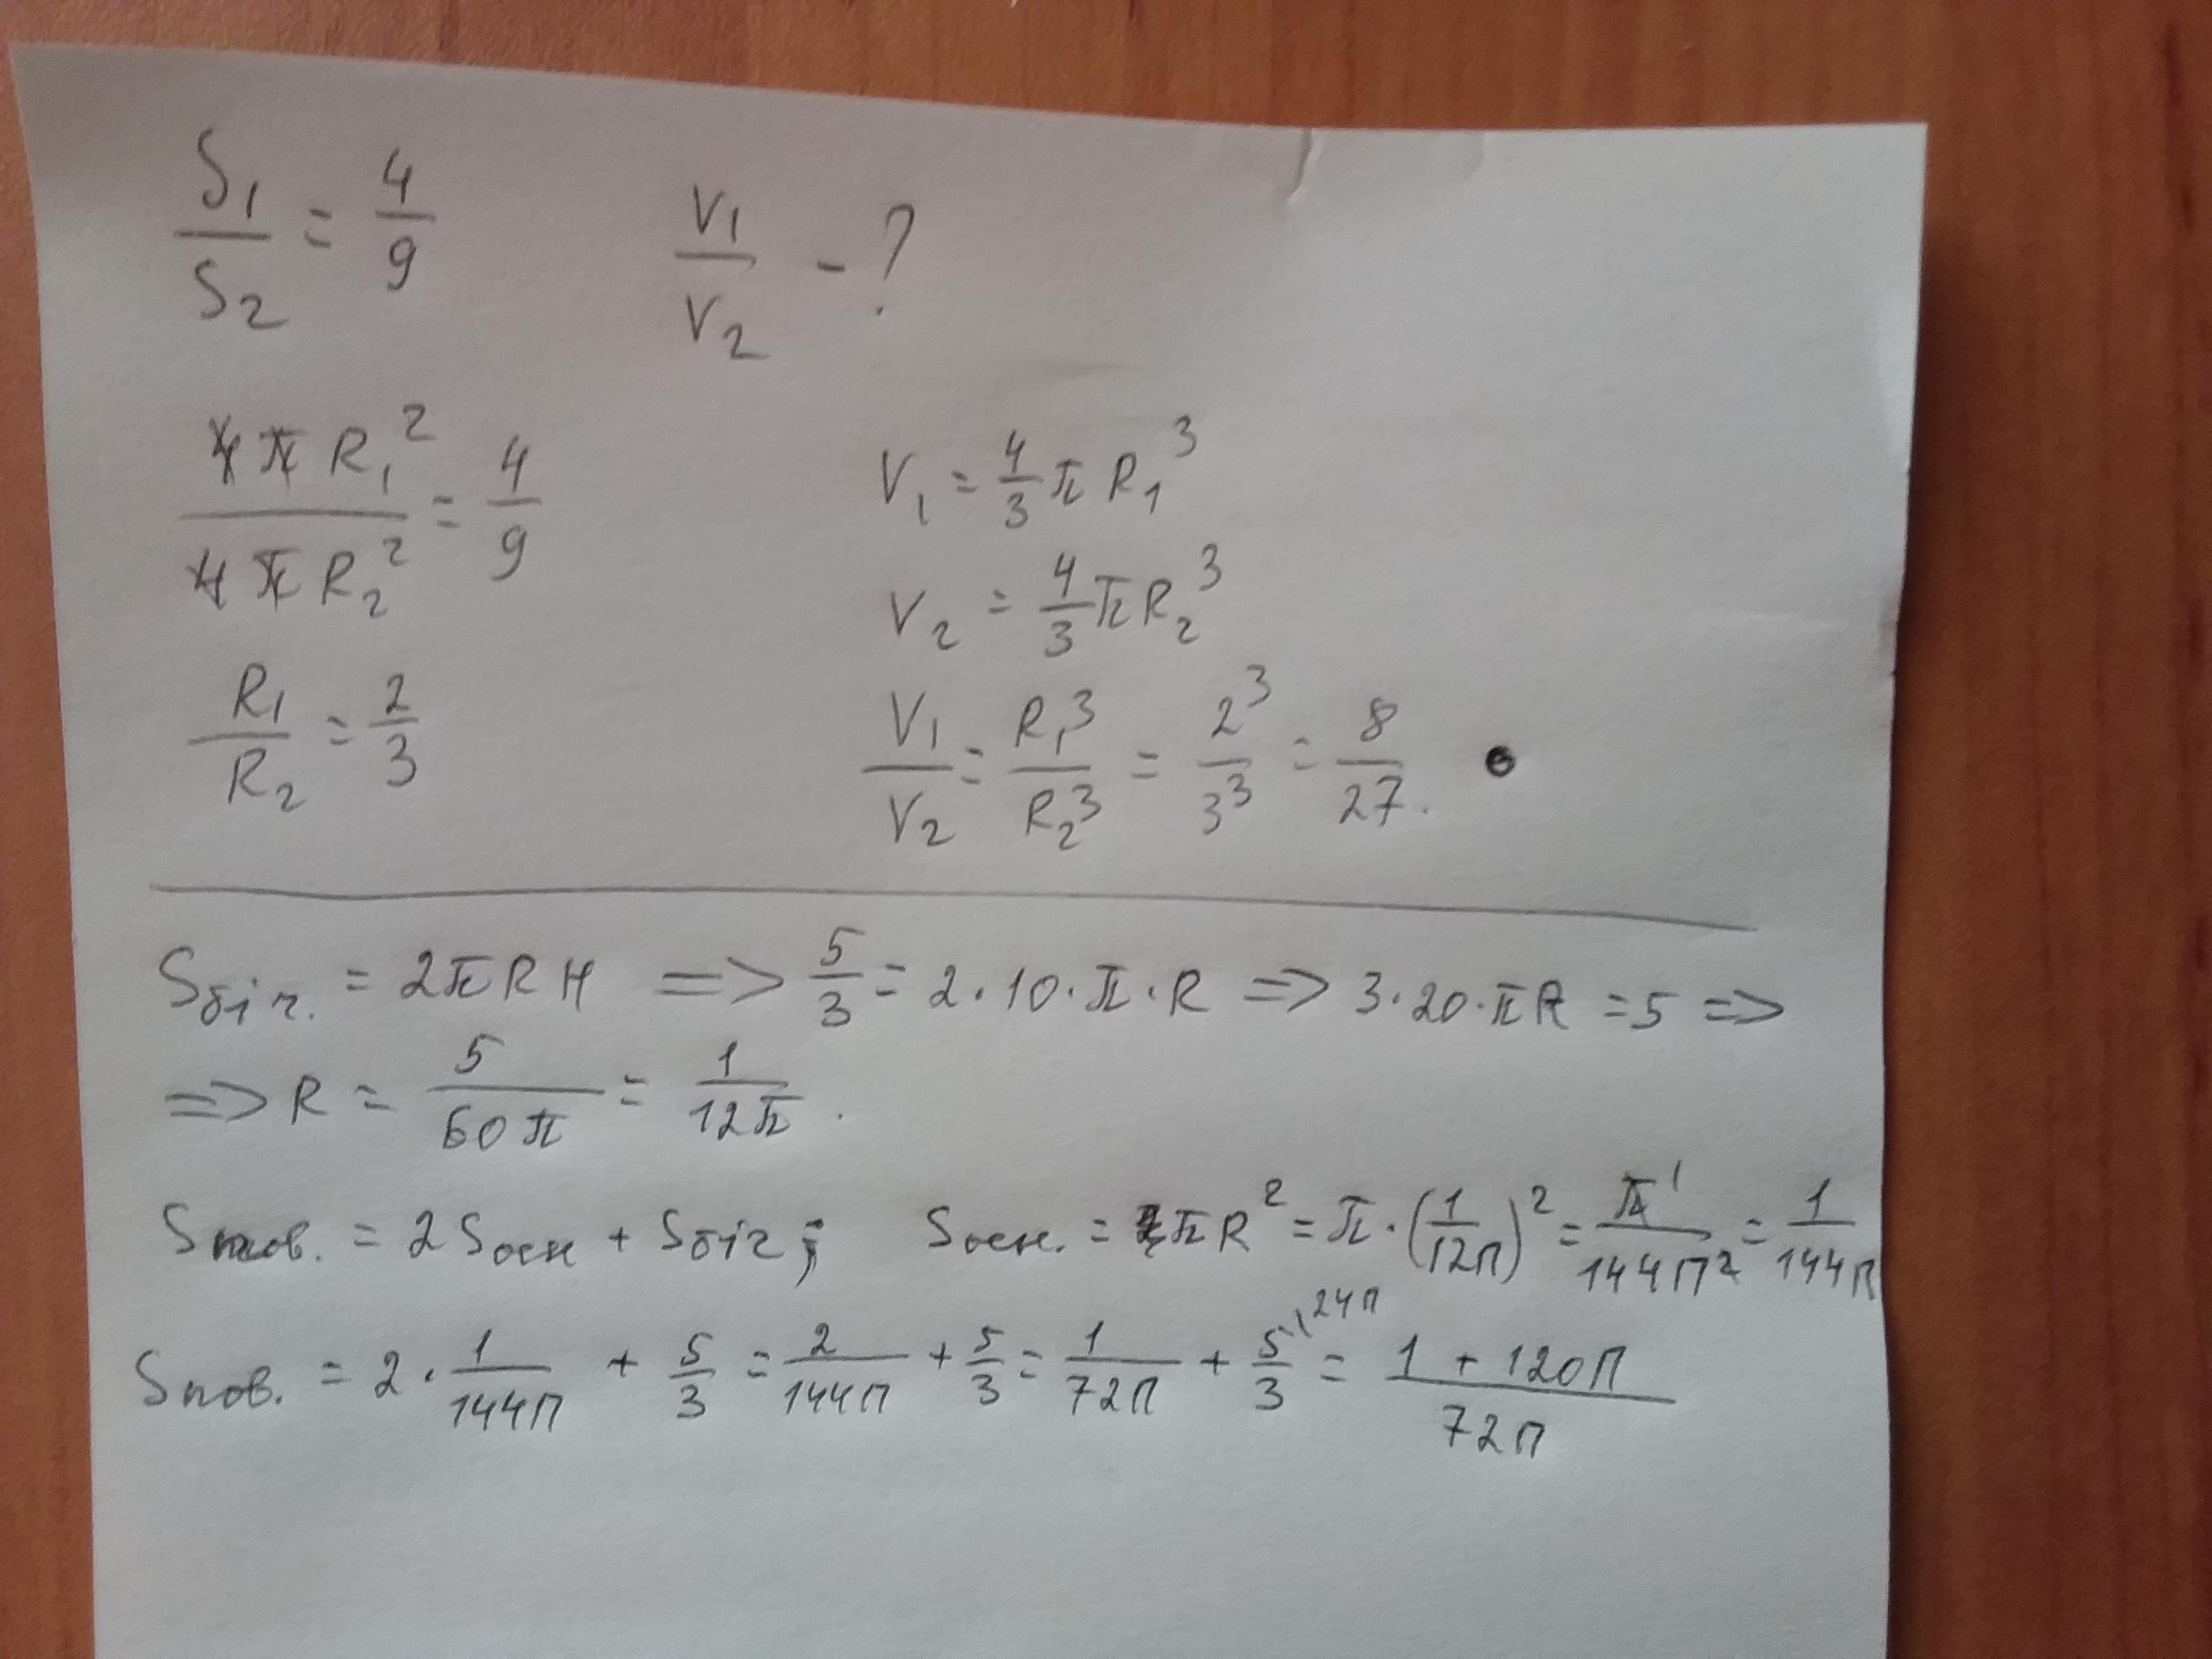 S₁/S₂ = 4/9   V₁/V₂ - ?
4πR₁²/4πR₂² = 4/9   V₁ = 4/3 πR₁³
V₂ = 4/3 πR₂³
R₁/R₂ = 2/3   V₁/V₂ = R₁³/R₂³ = 2³/3³ = 8/27.
Sбіч. = 2πRH => 5/3 = 2·10·π·R => 3·20·πR = 5 =>
=> R = 5/60π = 1/12π.
Sпов. = 2Sосн + Sбіч; Sосн. = πR² = π·(1/12П)² = π¹/144П² = 1/144П
Sпов. = 2·1/144П + 5/3 = 2/144П + 5/3 = 1/72П + 5\24П/3 = 1 + 120П/72П